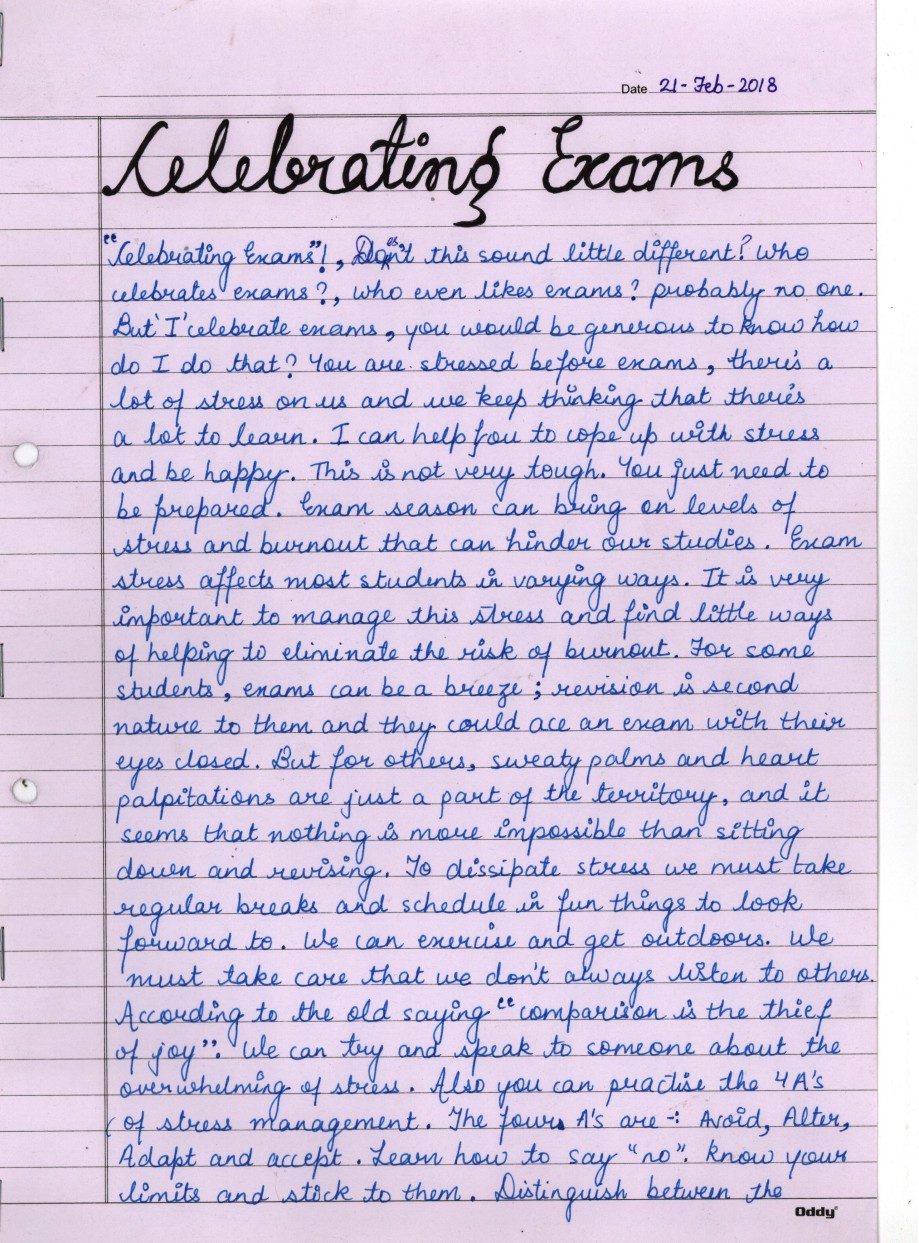 Date 21-Feb-2018
Celebrating Exams
"Celebrating Exams"!, Doesn't this sound little different? Who
celebrates exams?, who even likes exams? probably no one.
But 'I' celebrate exams, you would be generous to know how
do I do that? You are stressed before exams, there's a
lot of stress on us and we keep thinking that there's
a lot to learn. I can help you to cope up with stress
and be happy. This is not very tough. You just need to
be prepared. Exam season can bring on levels of
stress and burnout that can hinder our studies. Exam
stress affects most students in varying ways. It is very
important to manage this stress and find little ways
of helping to eliminate the risk of burnout. For some
students, exams can be a breeze; revision is second
nature to them and they could ace an exam with their
eyes closed. But for others, sweaty palms and heart
palpitations are just a part of the territory, and it
seems that nothing is more impossible than sitting
down and revising. To dissipate stress we must take
regular breaks and schedule in fun things to look
forward to. We can exercise and get outdoors. We
must take care that we don't always listen to others.
According to the old saying "comparison is the thief
of joy". We can try and speak to someone about the
overwhelming of stress. Also you can practise the 4 A's
of stress management. The four A's are -: Avoid, Alter,
Adapt and accept. Learn how to say "no". Know your
limits and stick to them. Distinguish between the
Oddy